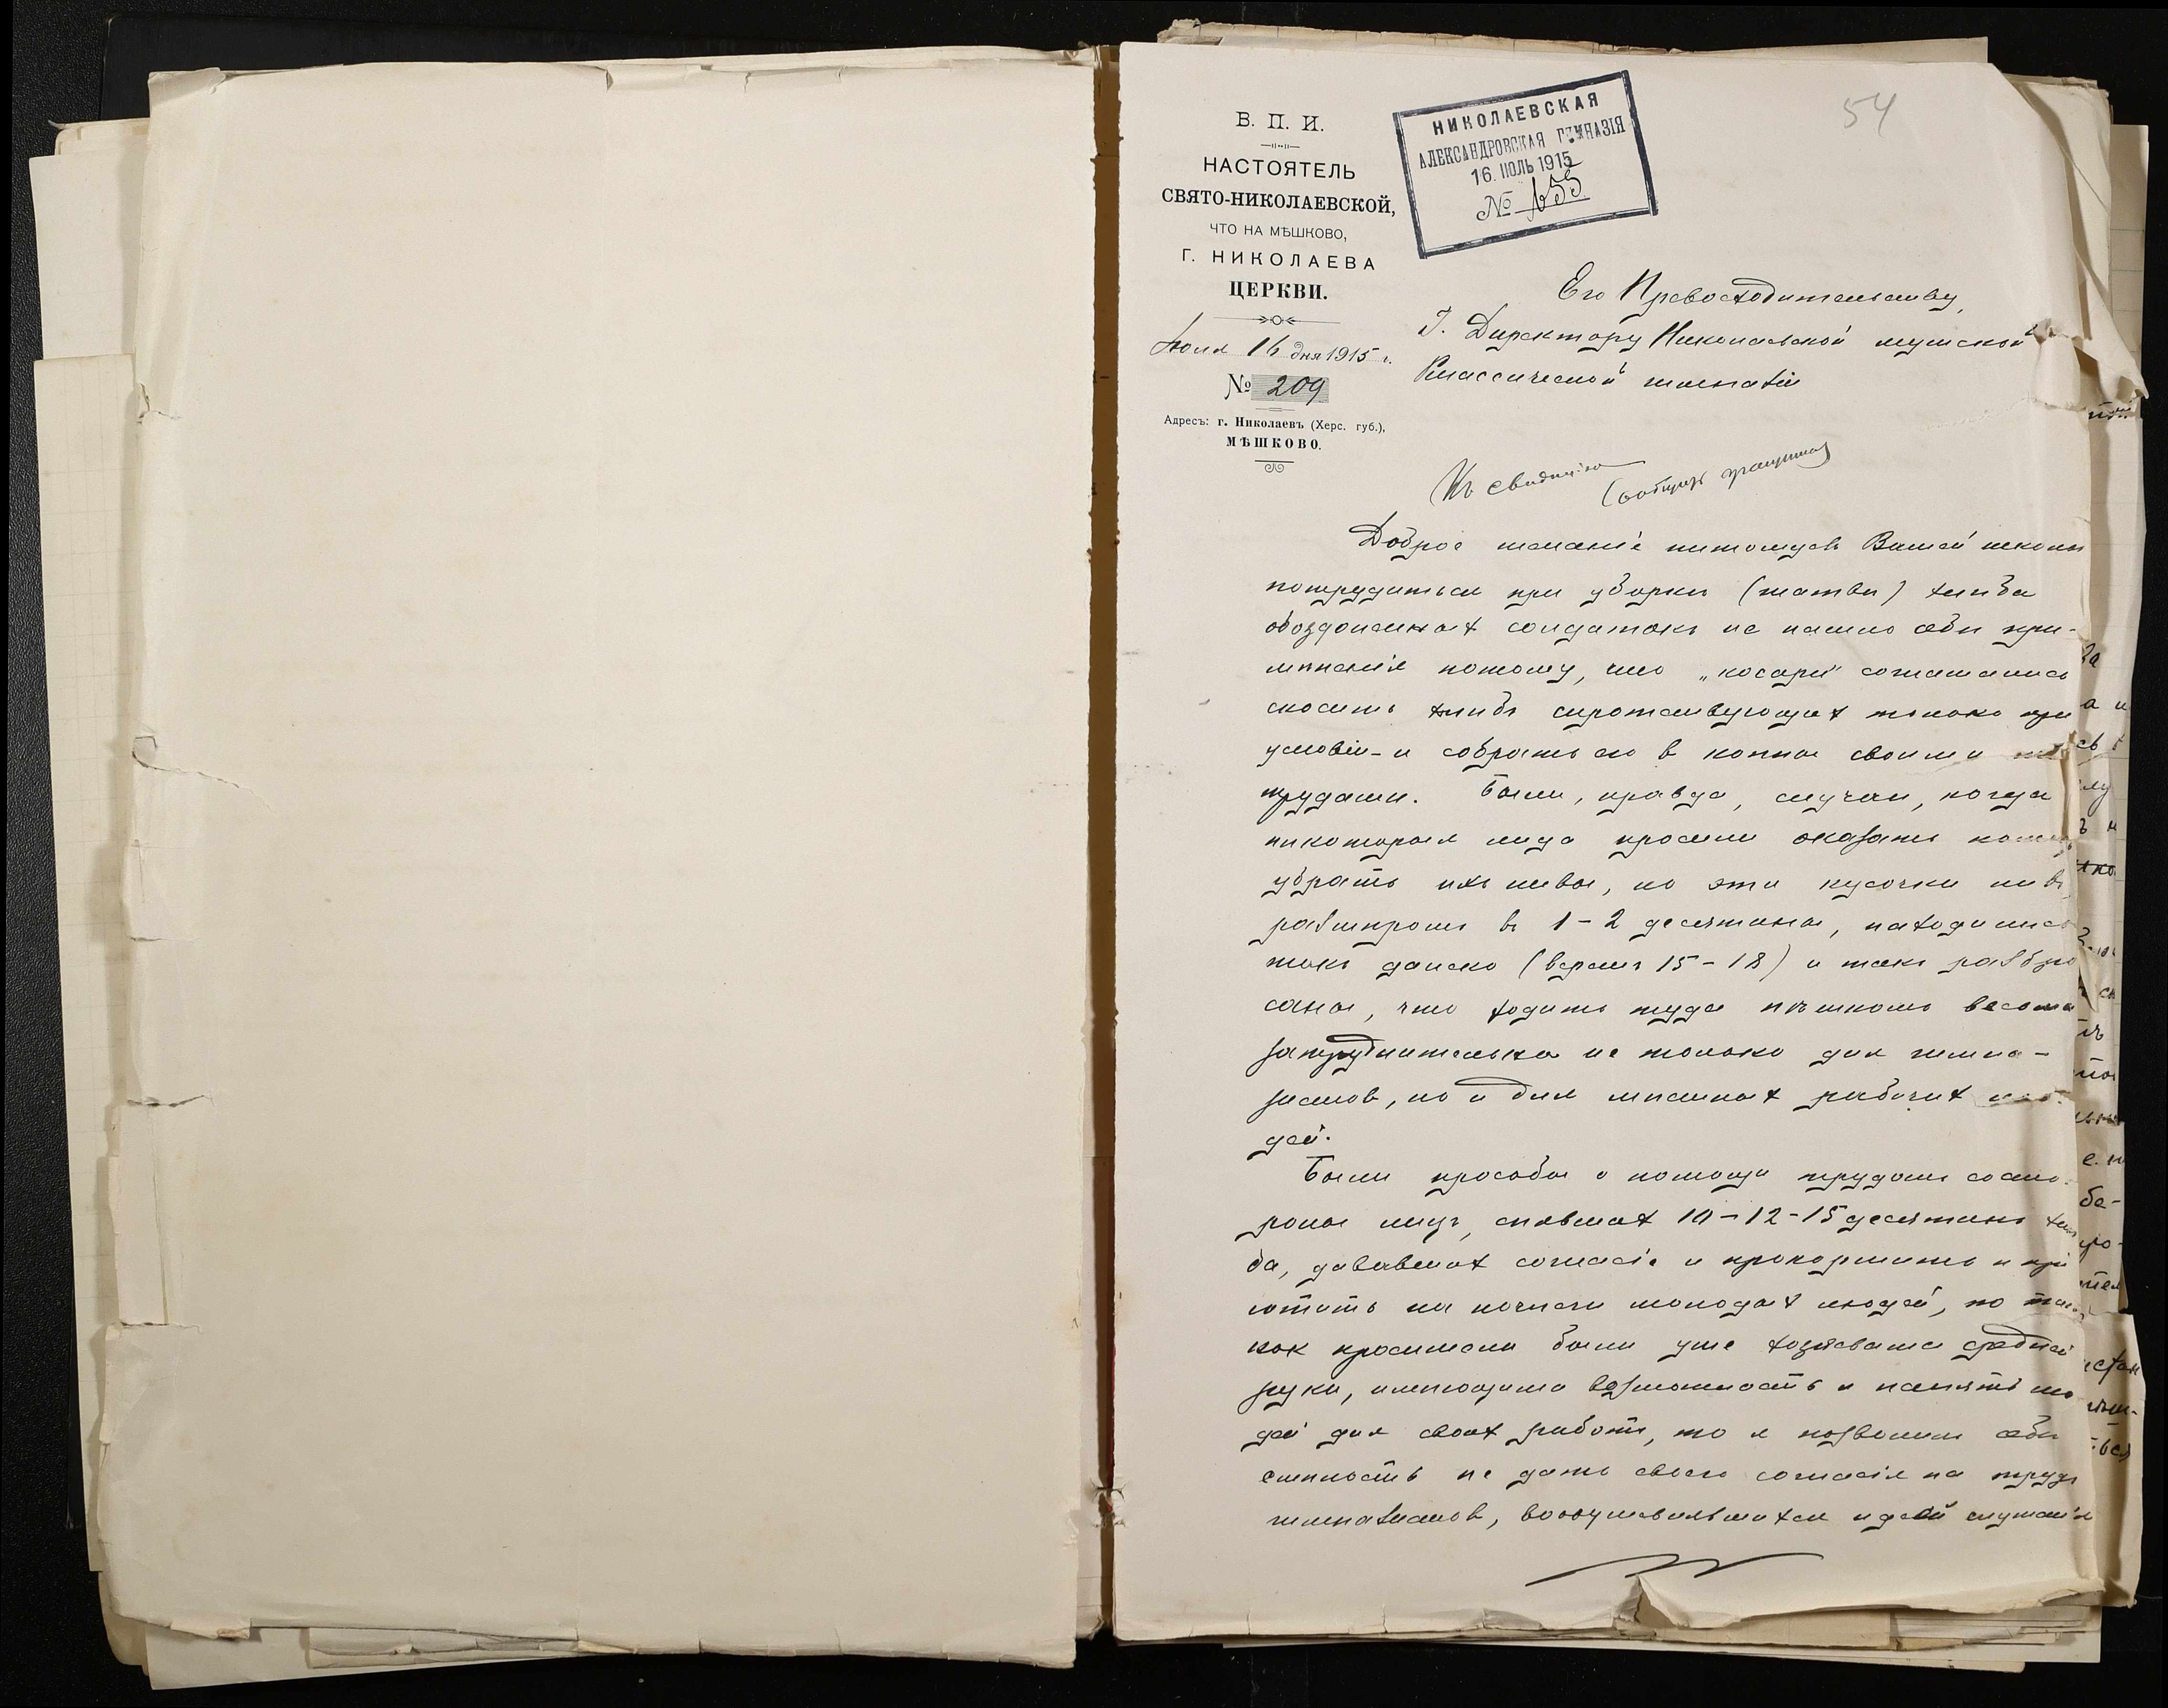 54
В. П. И.
НАСТОЯТЕЛЬ
СВЯТО-НИКОЛАЕВСКОЙ,
ЧТО НА МѢШКОВО,
Г. НИКОЛАЕВА
ЦЕРКВИ.
Іюля 16 дня 1915 г.
№ 209
Адресъ: г. Николаевъ (Херс. губ.),
МѢШКОВО.
НИКОЛАЕВСКАЯ
АЛЕКСАНДРОВСКАЯ ГИМНАЗІЯ
16. ІЮЛЬ 1915
№ 655
Его Превосходительству,
Г. Директору Николаевской мужской
Классической гимназіи
Къ свѣдѣнію
Доброе желаніе питомцевъ Вашей школы
потрудиться при уборкѣ (жатвѣ) хлѣба
обездоленных солдатокъ не нашло себѣ при-
мѣненія потому, что „косари" соглашались
скосить хлѣбъ сиротствующих только при
условіи – и собрать его в копны своими же
трудами. Были, правда, случаи, когда
нѣкоторыя лица просили оказать помощь
убрать ихъ нивы, но эти кусочки нивъ,
размѣромъ въ 1-2 десятины, находились
такъ далеко (верстъ 15-18) и такъ разбро
саны, что ходить туда пѣшкомъ весьма
затруднительно не только для гимна-
зистов, но и для мѣстных рабочих лю-
дей.
Были просьбы о помощи трудомъ со сто-
роны лицъ, сѣявших 10-12-15 десятинъ хлѣ
ба, дававших согласіе и прокормить и прі
ютить на ночлеги молодых людей, но так
как просители были уже хозяевами средней
руки, имѣющими возможность и нанять лю
дей для своих работъ, то я позволилъ себѣ
смѣлость не дать своего согласія на трудъ
гимназистов, воодушевлявшихся идеей служенія